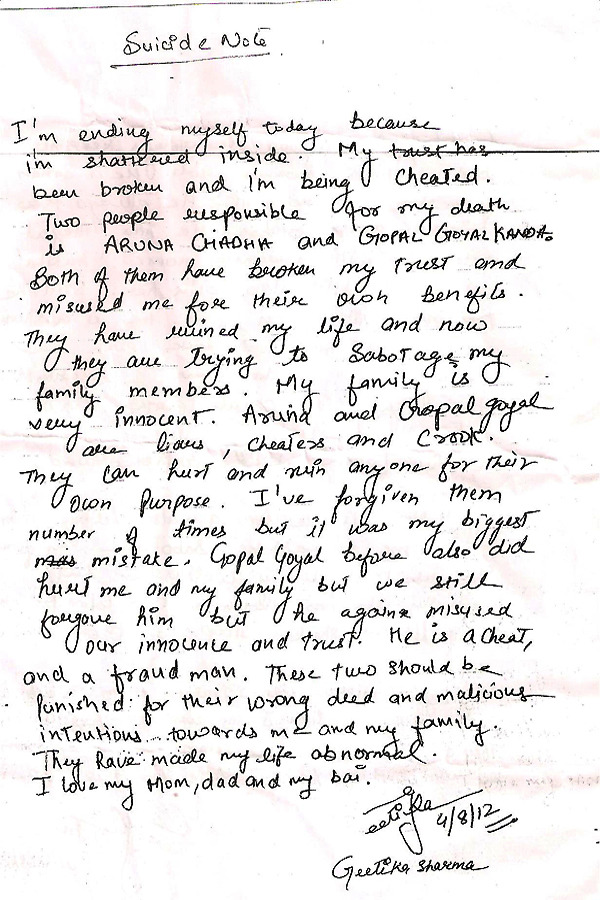 Suicide Note
I'm ending myself today because
i'm shattered inside. My trust has
been broken and i'm being cheated.
Two people responsible for my death
is ARUNA CHADHA and GOPAL GOYAL KANDA.
Both of them have broken my trust and
misused me for their own benefits.
They have ruined my life and now
they are trying to Sabotage my
family members. My family is
very innocent. Aruna and Gopal goyal
are liars, cheaters and Crook.
They can hurt and ruin anyone for their
own purpose. I've forgiven them
number of times but it was my biggest
mistake. Gopal Goyal before also did
hurt me and my family but we still
forgave him but he again misused
our innocence and trust. He is a cheat,
and a fraud man. These two should be
punished for their wrong deed and malicious
intentions towards me and my family.
They have made my life abnormal.
I love my Mom, dad and my bai.
Geetika
4/8/12
Geetika Sharma